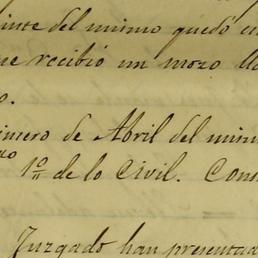 inte del mismo quedó en
ue recibió un mozo lla
o.
imero de Abril del mism
zo 1º de lo Civil. Cons
Juzgado han presentad